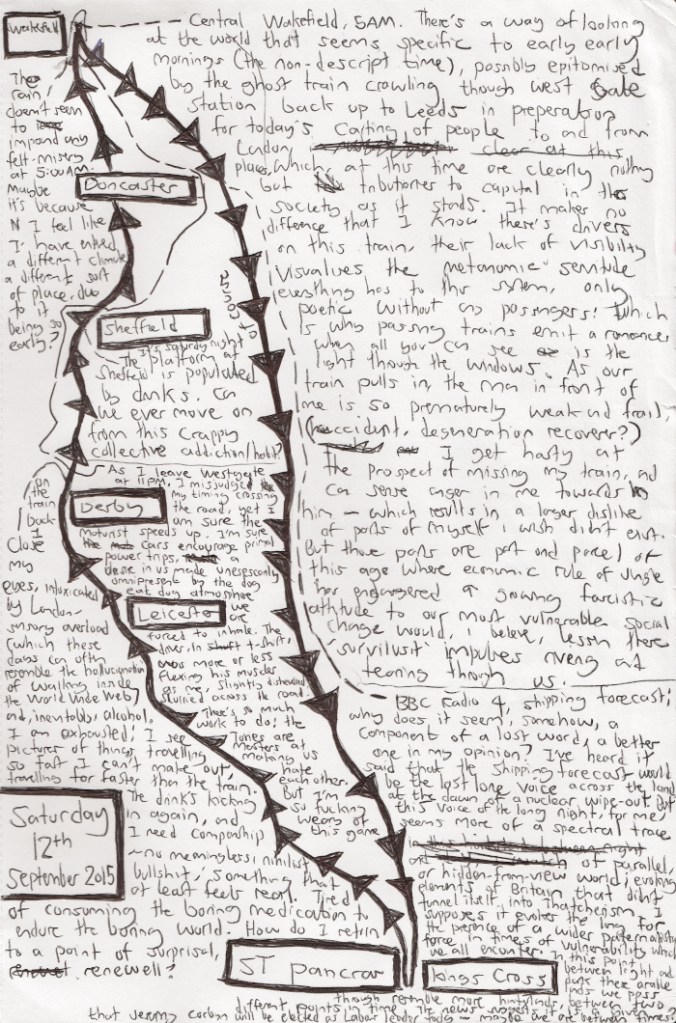 Wakefield
Central Wakefield, 5AM. There's a way of looking
at the world that seems specific to early early
mornings (the non-descript time), possibly epitomised
by the ghost train crawling though west Gate
station back up to Leeds in preperation
for today's Carting of people to and from
London
places, which at this time are clearly nothing
but tributories to capital in the
society as it stands. It makes no
difference that I know there's drivers
on this train, their lack of visibility
visualises the metonomic servitude
everything has to this system, only
poetic without any passengers! Which
is why passing trains emit a romance
when all you can see is the
light though the windows. As our
train pulls in, the man in front of
me is so prematurely weak and frail,
(accident, degeneration recoverer?)
I get hasty at
the prospect of missing my train, and
can sense anger in me towards
him – which results in a larger dislike
of parts of myself i wish didn't exist.
But those parts are part and parcel of
this age where economic rule of Jungle
has endangered a growing farcistic
attitude to our most vulnerable. Social
change would, i believe, lessen these
'survilust' impulses riveng and
tearing through us.
The
rain
doesn't seem
to
impand any
felt-misery
at 5:00AM.
Maybe
it's because
I feel like
I have entered
a different climate
a different sort
of place, due
to it
being so
early?
Doncaster
Sheffield
It's saturday night
The platform at
Sheffield is populated
by drunks. Can
we ever move on
from this crappy
collective addiction/habit?
As I leave Westgate
at 11pm, I misjudged
my timing crossing
the road, yet I
am sure the
motorist speeds up. I'm sure
the cars encourage primal
power trips,
desire in us made unescapably
omnipresent by the dog
eat dog atmosphere
we are
forced to inhale. The
driver, in t-shirt,
was more or less
flexing his muscles
as me, slightly dishevelled
stuttered across the road.
There's so much
work to do; the
Jones are
masters at
making us
hate
each other.
But I'm
so fucking
weary of
this game
Derby
Leicester
on
the
train
back
I
Close
my
eyes, intoxicated
by London-
sensory overload
(which these
days can often
resemble the hallucination
of walking inside
the World Wide Web)
and, inevitably, alcohol.
I am exhausted; I see
pictures of things, travelling
so fast I can't make out,
travelling far faster than the train.
The drink's kicking
in again, and
I need companship
~no meaningless; nihilist
bullshit; something that
at least feels real. Tired
of consuming the boring medication to
endure the boring world. How do I return
to a point of surprisal,
renewell?
Saturday
12th
September 2015
BBC Radio 4, shipping forecast;
why does it seem, somehow, a
component of a lost word, a better
one in my opinion? I've heard it
said that the shipping forecast would
be the last lone voice across the land
at the dawn of a nuclear wipe-out. But
this side of the long night, for me,
seems more of a spectral trace
of parallel,
or hidden-from-view world; evoking
elements of Britain that didn't
tunnel itself into Thatcherism. I
supposes it evokes the long for
the presence of a wider paternalistic
force in times of vulnerability which
we all encounter. In this point
between light and
dark these arable
lands we pass
though resemble more hinterlands, between two
different points in time. The news suggests it is a given
that Jeremy Corbyn will be elected as Labour leader today – maybe we are between times?
ST Pancras
Kings Cross